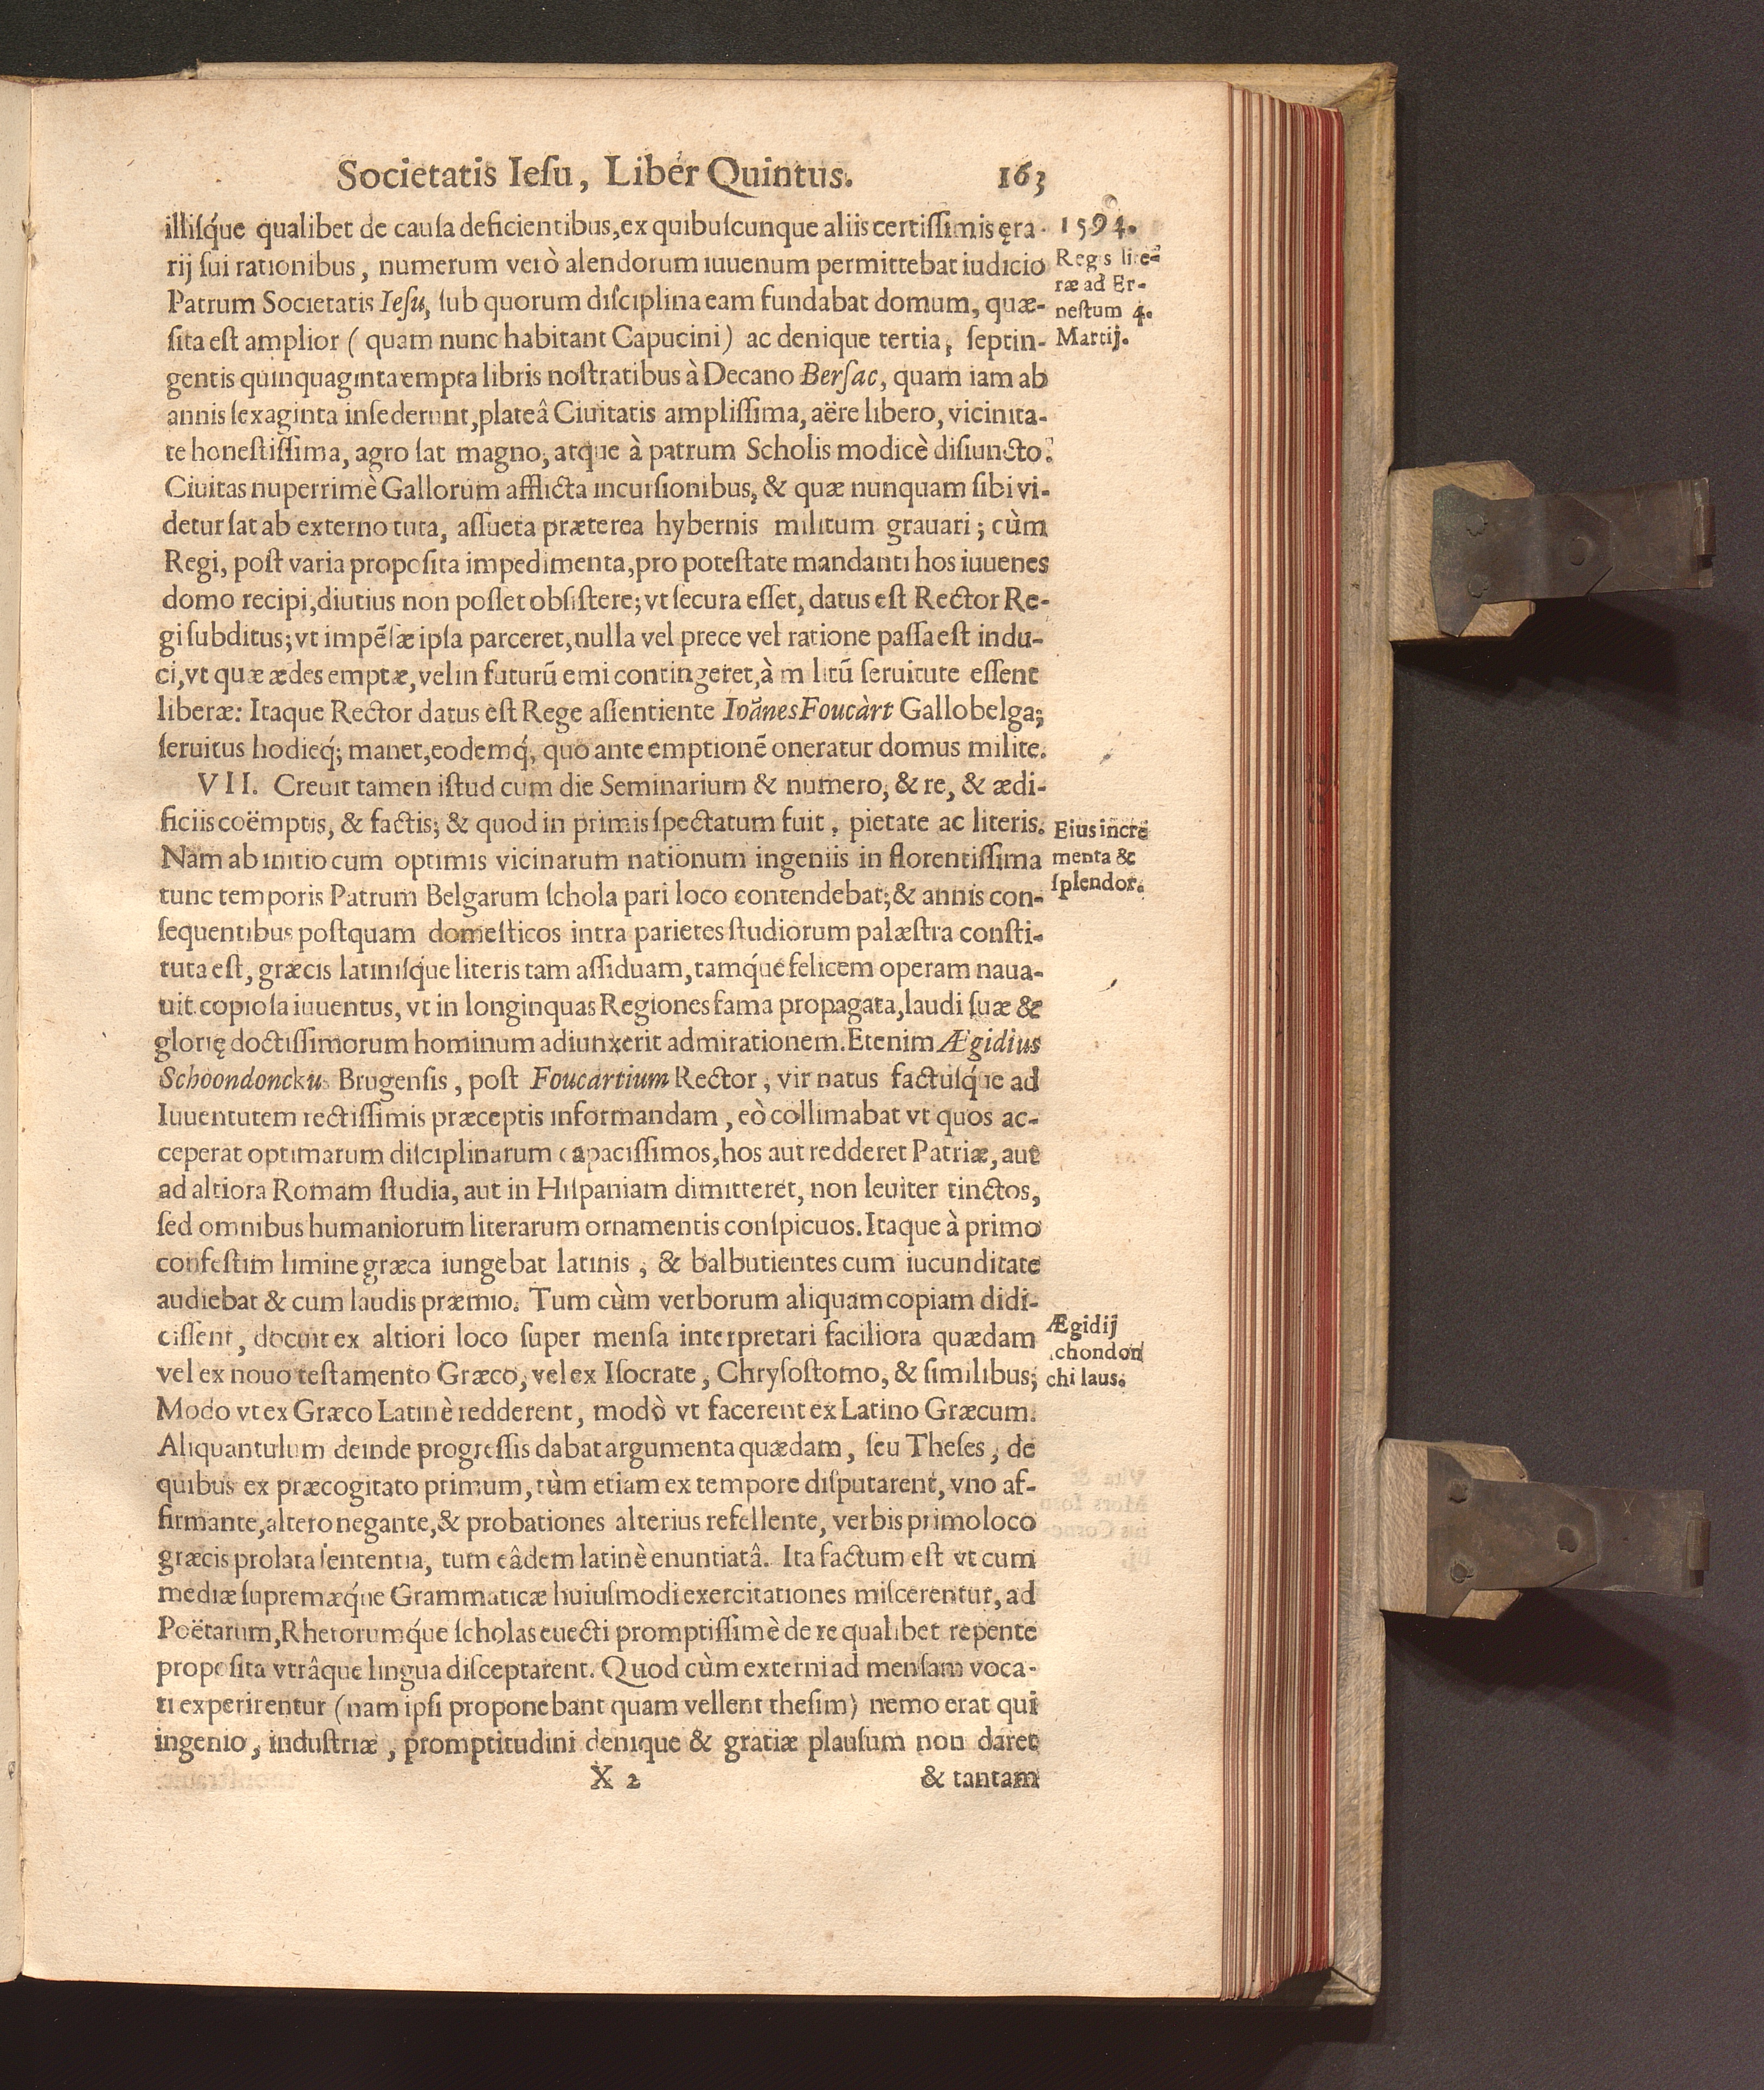 Societatis Ieſu, Liber Quintus. 163
illiſq́ue qualibet de cauſa deficientibus, ex quibuſcunque aliis certiſſimis ęra-
rij ſui rationibus, numerum verò alendorum iuuenum permittebat iudicio
Patrum Societatis Ieſu, ſub quorum diſciplina eam fundabat domum, quæ-
ſita eſt amplior (quam nunc habitant Capucini) ac denique tertia, ſeptin-
gentis quinquaginta empta libris noſtratibus à Decano Berſac, quam iam ab
annis ſexaginta inſederunt, plateâ Ciuitatis ampliſſima, aëre libero, vicinita-
te honeſtiſſima, agro ſat magno, atque à patrum Scholis modicè diſiuncto.
Ciuitas nuperrimè Gallorum afflicta incurſionibus, & quæ nunquam ſibi vi-
detur ſat ab externo tuta, aſſueta præterea hybernis militum grauari; cùm
Regi, poſt varia propoſita impedimenta, pro poteſtate mandanti hos iuuenes
domo recipi, diutius non poſſet obſiſtere; vt ſecura eſſet, datus eſt Rector Re-
gi ſubditus; vt impẽſæ ipſa parceret, nulla vel prece vel ratione paſſa eſt indu-
ci, vt quæ ædes emptæ, vel in futurũ emi contingeret, à militũ ſeruitute eſſent
liberæ: Itaque Rector datus eſt Rege aſſentiente Ioãnes Foucàrt Gallobelga;
ſeruitus hodieq́; manet, eodemq́; quo ante emptionẽ oneratur domus milite.
VII. Creuit tamen iſtud cum die Seminarium & numero, & re, & ædi-
ficiis coëmptis, & factis; & quod in primis ſpectatum fuit, pietate ac literis.
Nam ab initio cum optimis vicinarum nationum ingeniis in florentiſſima
tunc temporis Patrum Belgarum ſchola pari loco contendebat; & annis con-
ſequentibus poſtquam domeſticos intra parietes ſtudiorum palæſtra conſti-
tuta eſt, græcis latiniſq́ue literis tam aſſiduam, tamq́ue felicem operam naua-
uit copioſa iuuentus, vt in longinquas Regiones fama propagata, laudi ſuæ &
glorię doctiſſimorum hominum adiunxerit admirationem. Etenim Ægidius
Schoondonckus Brugenſis, poſt Foucartium Rector, vir natus factuſq́ue ad
Iuuentutem rectiſſimis præceptis informandam, eò collimabat vt quos ac-
ceperat optimarum diſciplinarum capaciſſimos, hos aut redderet Patriæ, aut
ad altiora Romam ſtudia, aut in Hiſpaniam dimitteret, non leuiter tinctos,
ſed omnibus humaniorum literarum ornamentis conſpicuos. Itaque à primo
confeſtim limine græca iungebat latinis, & balbutientes cum iucunditate
audiebat & cum laudis præmio. Tum cùm verborum aliquam copiam didi-
ciſſent, docuit ex altiori loco ſuper menſa interpretari faciliora quædam
vel ex nouo teſtamento Græco, vel ex Iſocrate, Chryſoſtomo, & ſimilibus;
Modo vt ex Græco Latinè redderent, modò vt facerent ex Latino Græcum.
Aliquantulum deinde progreſſis dabat argumenta quædam, ſeu Theſes, de
quibus ex præcogitato primum, tùm etiam ex tempore diſputarent, vno af-
firmante, altero negante, & probationes alterius refellente, verbis primo loco
græcis prolata ſententia, tum eâdem latinè enuntiatâ. Ita factum eſt vt cum
mediæ ſupremæq́ue Grammaticæ huiuſmodi exercitationes miſcerentur, ad
Poëtarum, Rhetorumq́ue ſcholas euecti promptiſſimè de re qualibet repente
propoſita vtrâque lingua diſceptarent. Quod cùm externi ad menſam voca-
ti experirentur (nam ipſi proponebant quam vellent theſim) nemo erat qui
ingenio, induſtriæ, promptitudini denique & gratiæ plauſum non daret
X 2 & tantam
1594.
Regis lite-
ræ ad Er-
neſtum 4.
Martij.
Eius incre
menta &
ſplendor.
Ægidij
chondon
chi laus.